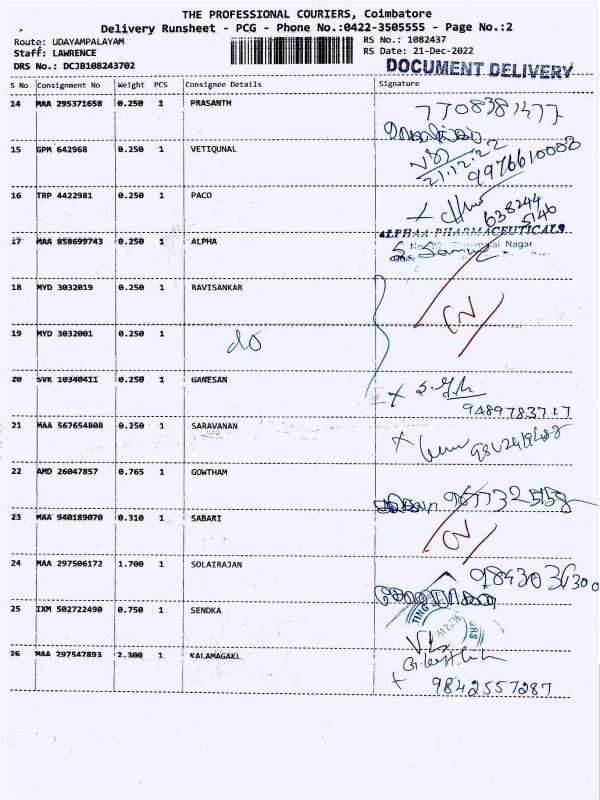 THE PROFESSIONAL COURIERS, Coimbatore
Delivery Runsheet - PCG - Phone No.:0422-3505555 - Page No.:2
Route: UDAYAMPALAYAM
Staff: LAWRENCE
DRS No.: DCJB108243702
RS No.: 1082437
RS Date: 21-Dec-2022
DOCUMENT DELIVERY
S No Consignment No Weight PCS Consignee Details Signature
14 MAA 295371658 0.250 1 PRASANTH
7708381477
15 GPM 642968 0.250 1 VETIQUNAL
21.12.22
9976610008
16 TRP 4422981 0.250 1 PACO
638244
5146
17 MAA 858699743 0.250 1 ALPHA
ALPHAA PHARMACEUTICALS
Nagar
18 MYD 3032019 0.250 1 RAVISANKAR
19 MYD 3032001 0.250 1 do
20 SVK 10340411 0.250 1 GANESAN
9489783717
21 MAA 567654808 0.250 1 SARAVANAN
22 AMD 26047857 0.765 1 GOWTHAM
9677325158
23 MAA 940189070 0.310 1 SABARI
24 MAA 297506172 1.700 1 SOLAIRAJAN
9843036300
25 IXM 502722490 0.750 1 SENDKA
26 MAA 297547893 2.300 1 KALAMAGAKL
9842557287